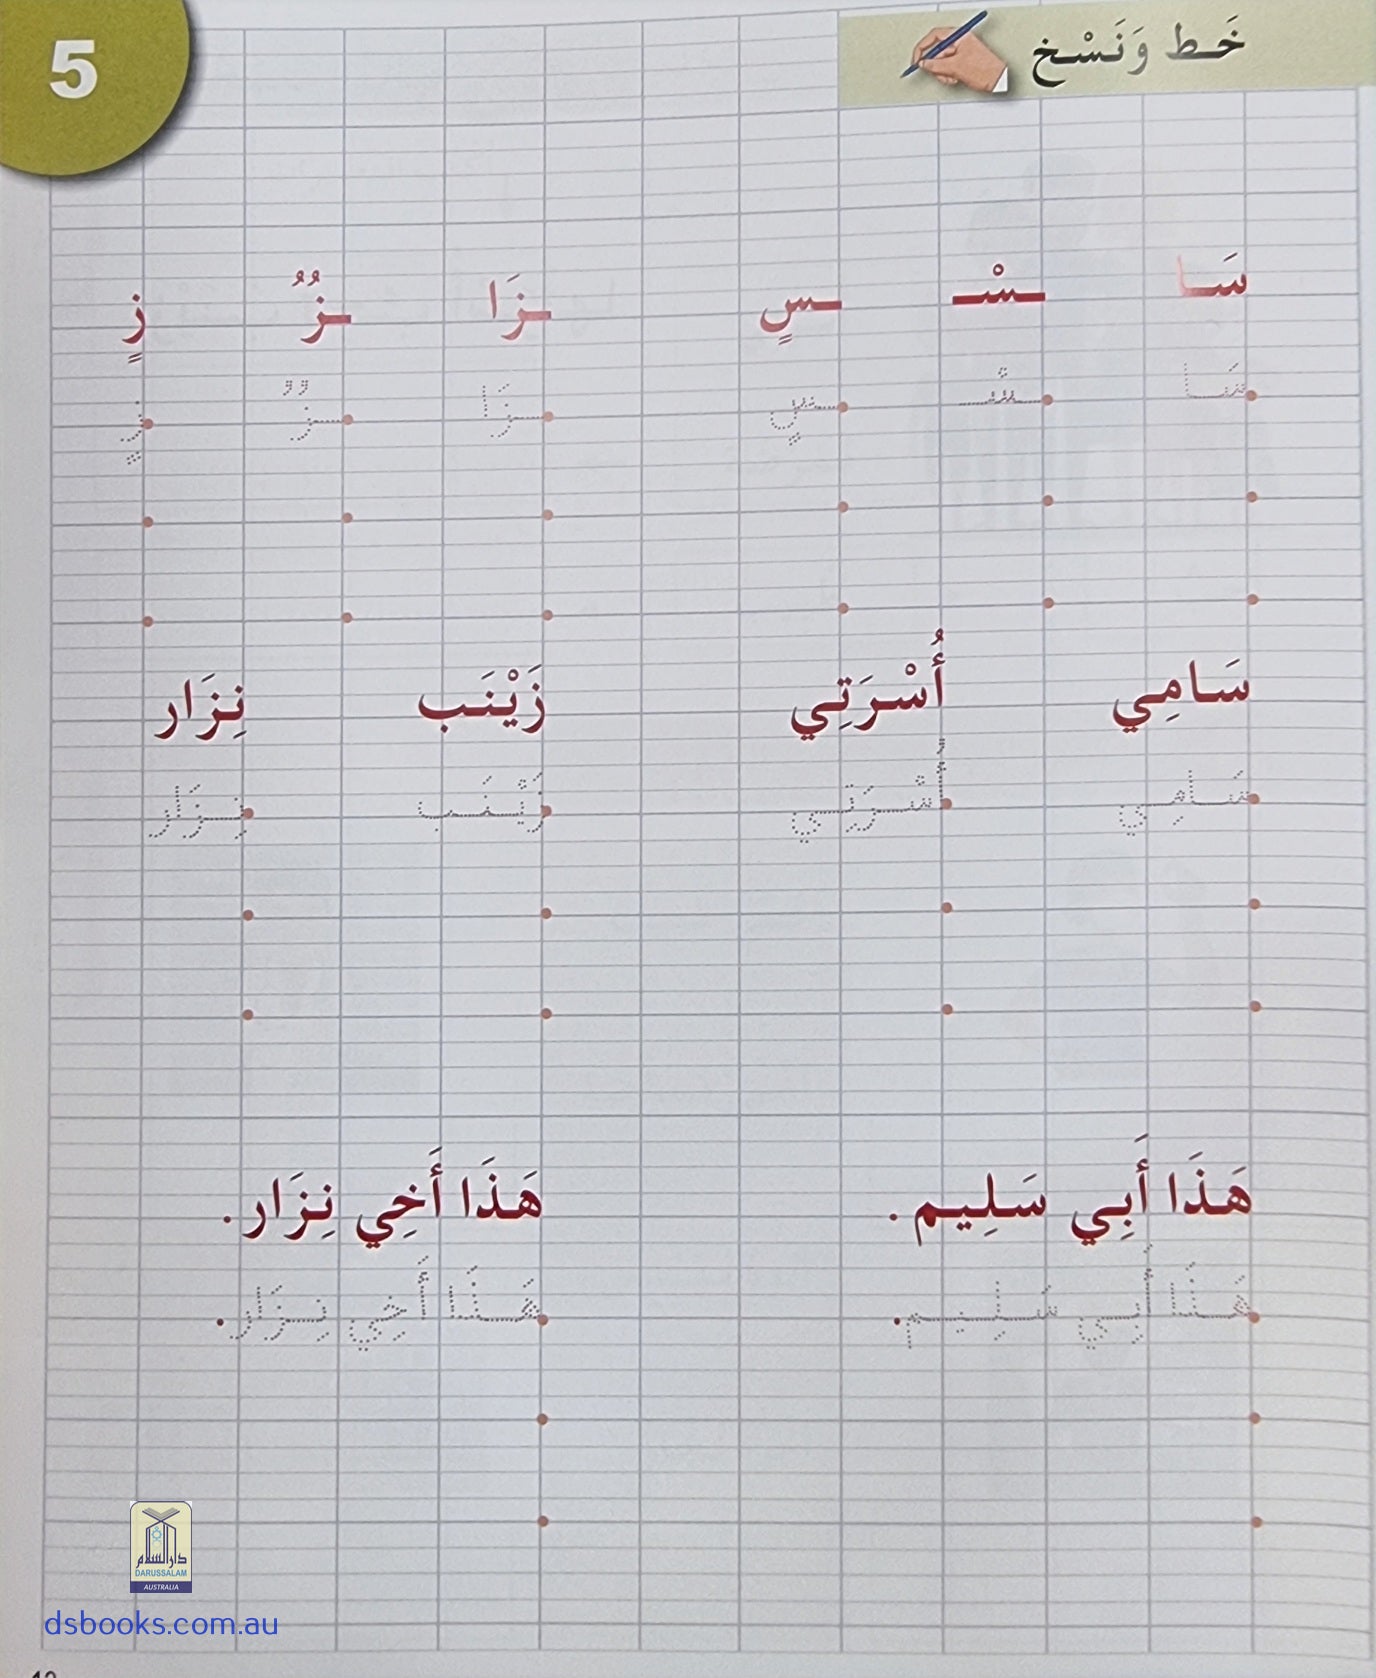 خَط وَنَسْخ
5
سَا سْـ ـسٍ ـزَا ـزٌ زٍ
سَا سْـ ـسٍ ـزَا ـزٌ زٍ
سَامِي أُسْرَتِي زَيْنَب نِزَار
سَامِي أُسْرَتِي زَيْنَب نِزَار
هَذَا أَبِي سَلِيم. هَذَا أَخِي نِزَار.
هَذَا أَبِي سَلِيم. هَذَا أَخِي نِزَار.
دار السلام
DARUSSALAM
AUSTRALIA
dsbooks.com.au